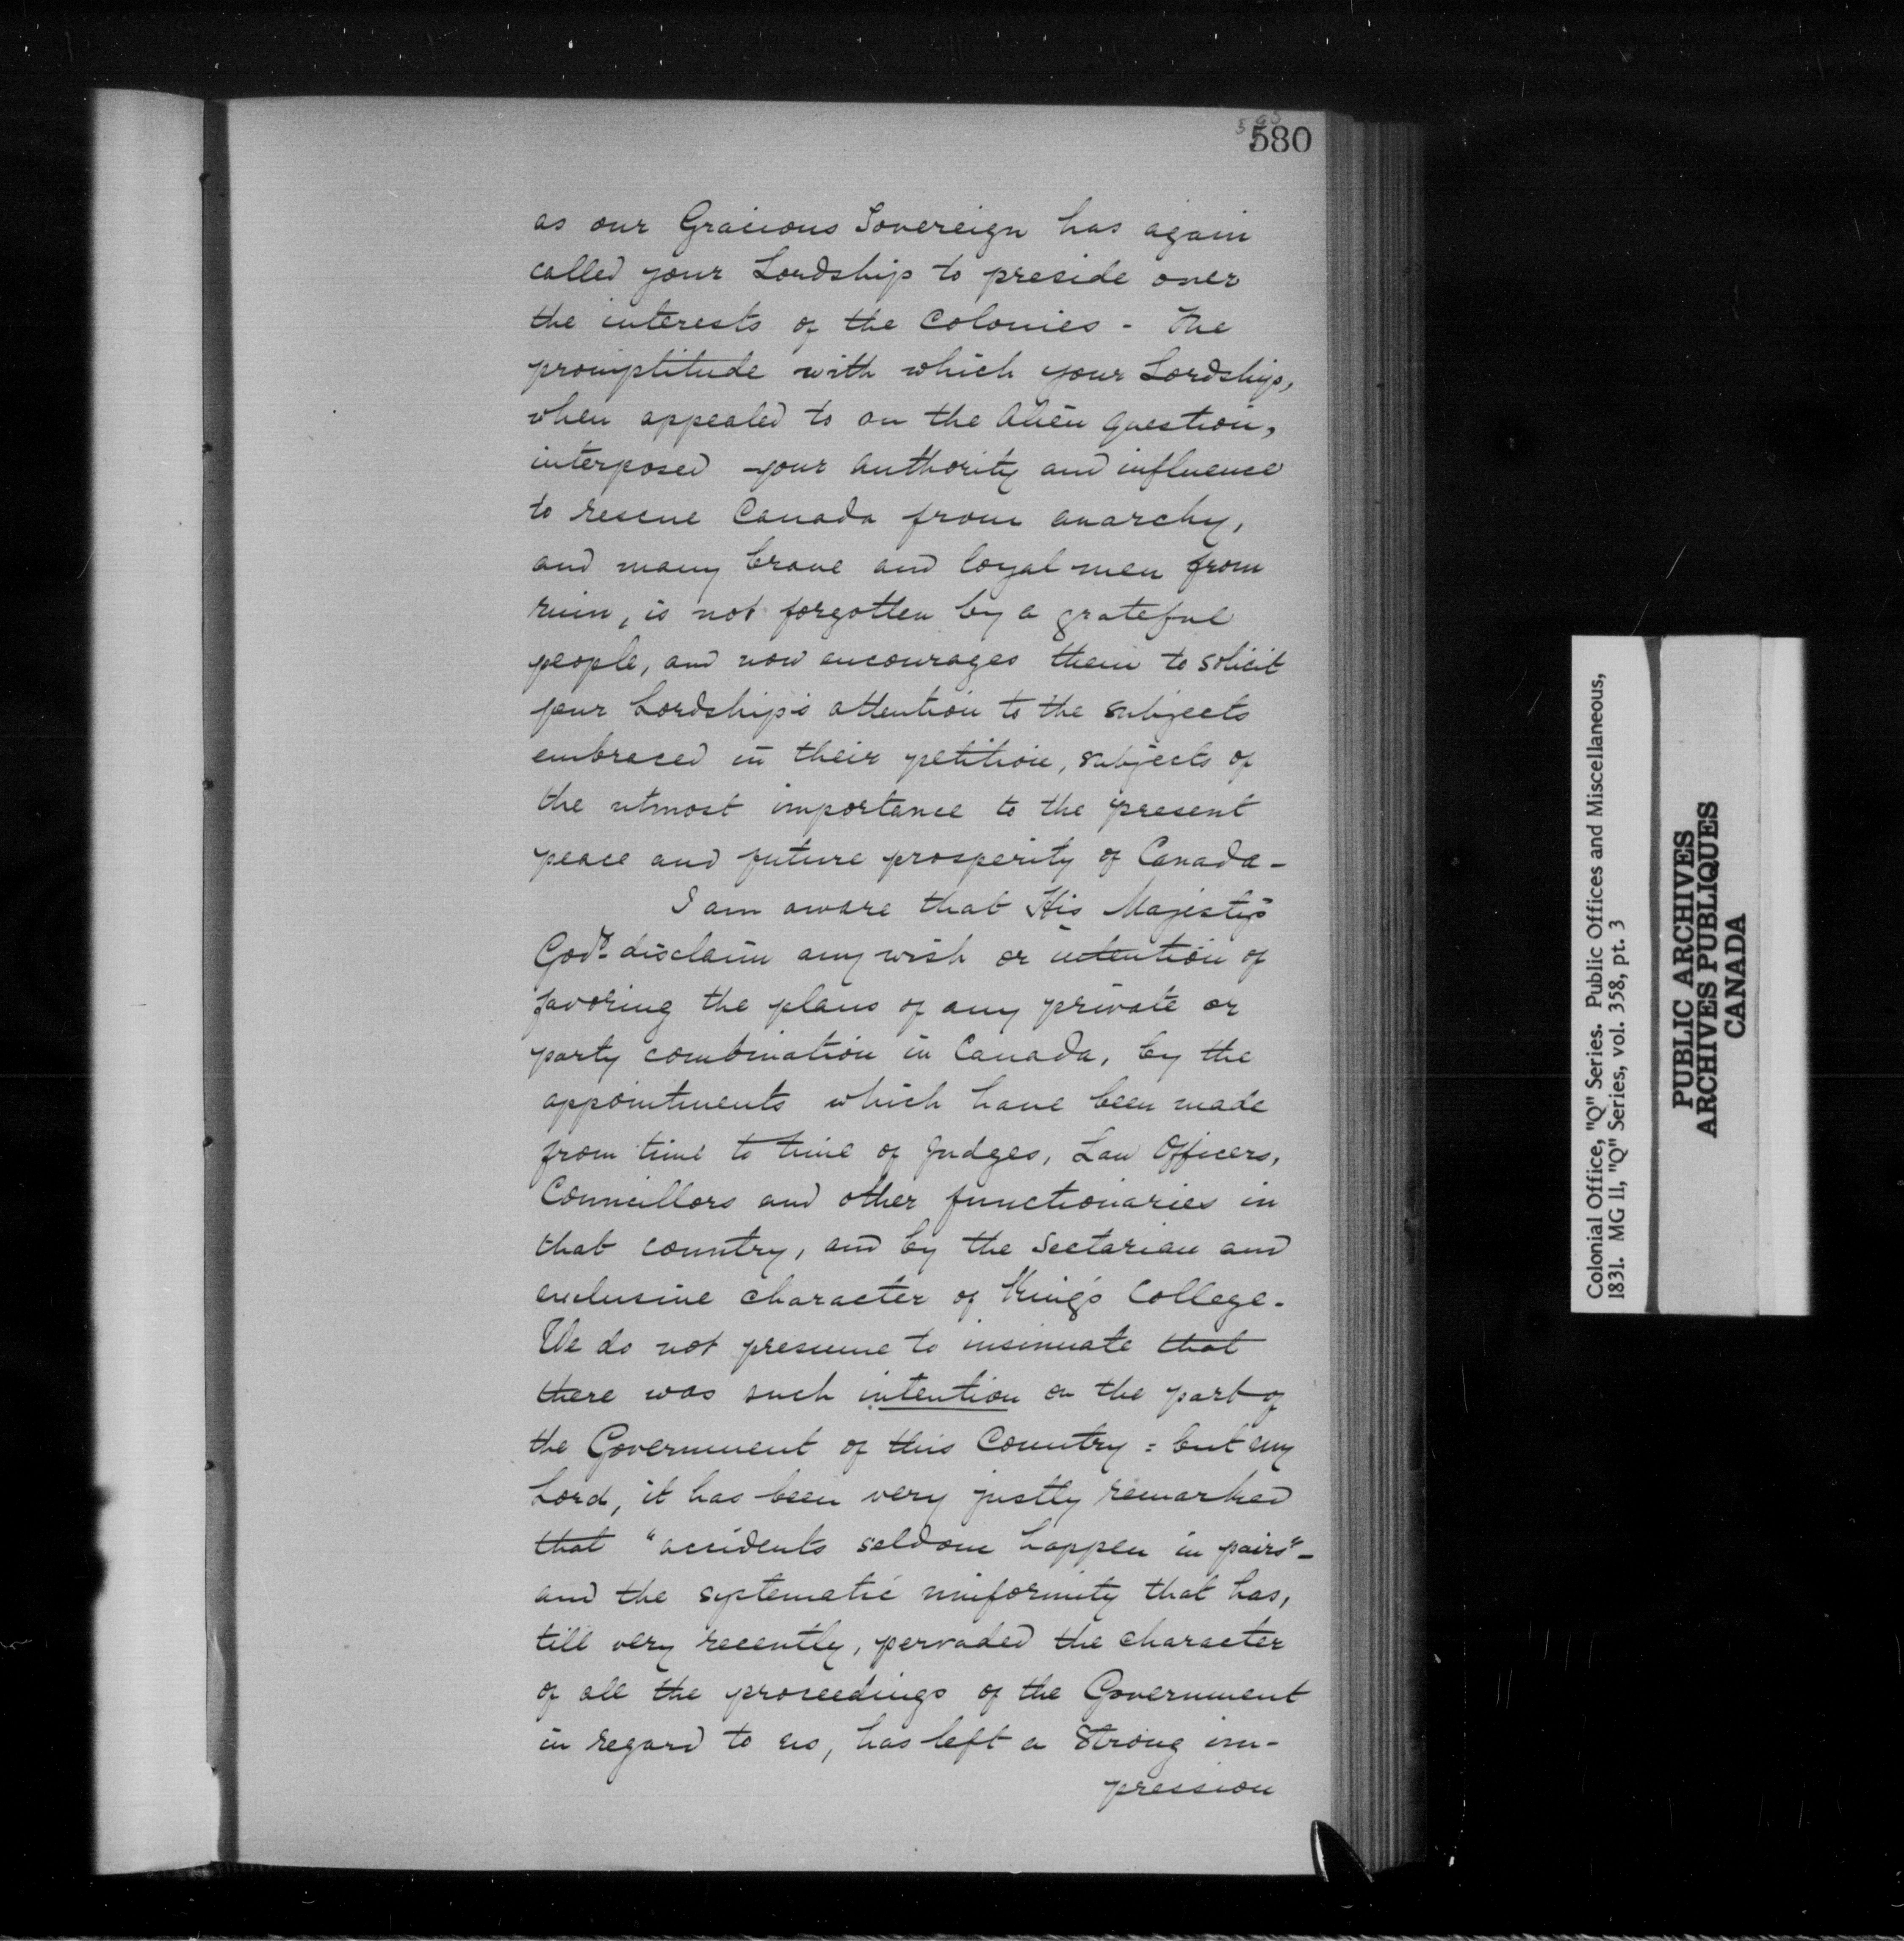 580
as our Gracious Sovereign has again
called your Lordship to preside over
the interests of the Colonies - The
promptitude with which your Lordship,
when appealed to on the Alien question,
interposed your authority and influence
to rescue Canada from anarchy,
and many brave and loyal men from
ruin, is not forgotten by a grateful
people, and now encourages them to solicit
your Lordship's attention to the subjects
embraced in their petition, subjects of
the utmost importance to the present
peace and future prosperity of Canada -
I am aware that His Majesty's
Govt. disclaim any wish or intention of
favoring the plans of any private or
party combination in Canada, by the
appointments which have been made
from time to time of Judges, Law Officers,
Councillors and other functionaries in
that country, and by the Sectarian and
exclusive character of King's College.
We do not presume to insinuate that
there was such intention on the part of
the Government of this Country: but my
Lord, it has been very justly remarked
that "accidents seldom happen in pairs" -
and the systematic uniformity that has,
till very recently, pervaded the character
of all the proceedings of the Government
in regard to us, has left a strong im-
pression
Colonial Office, "Q" Series. Public Offices and Miscellaneous,
1831. MG 11, "Q" Series, vol. 358, pt. 3
PUBLIC ARCHIVES
ARCHIVES PUBLIQUES
CANADA